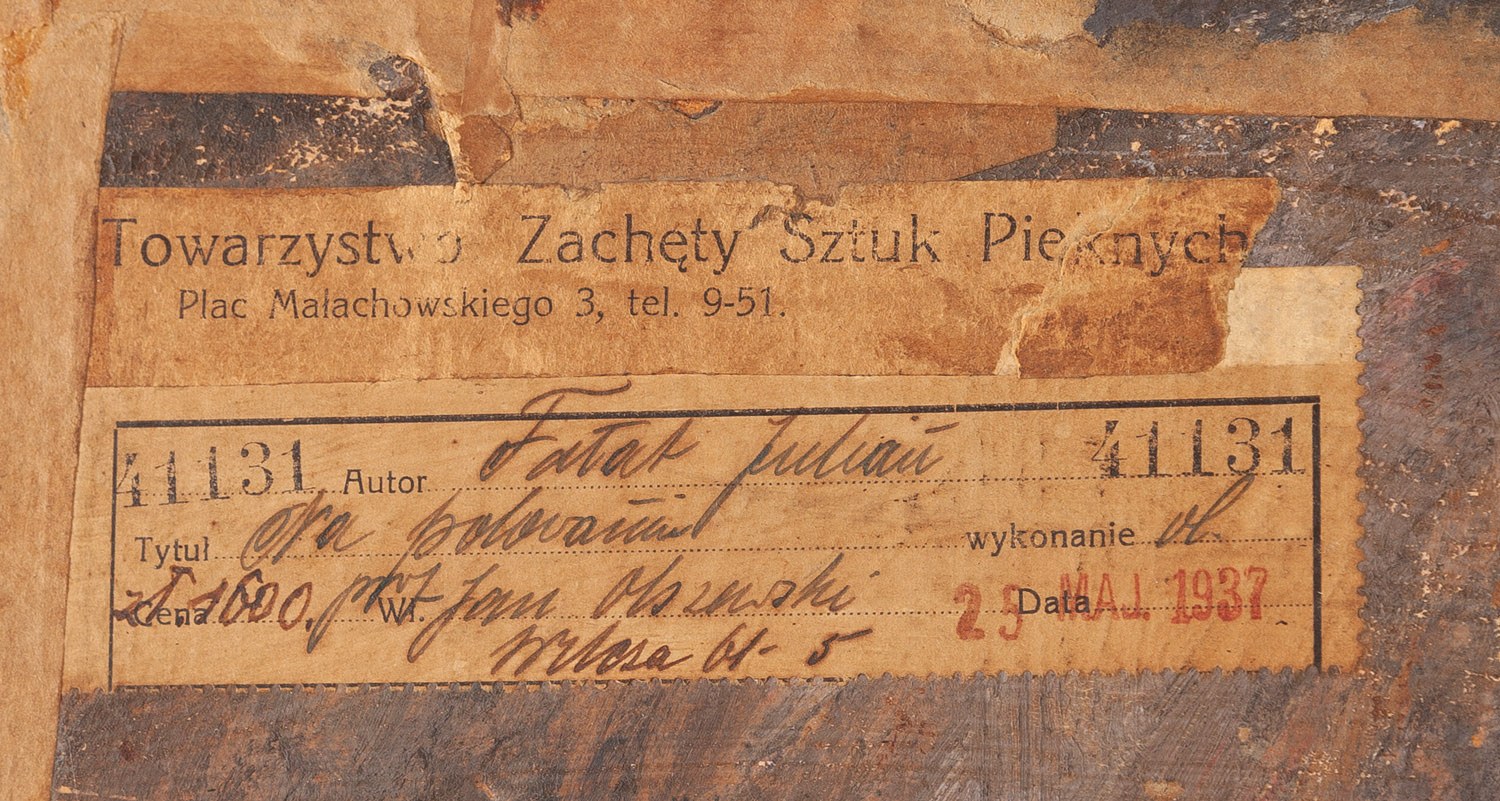 Towarzystwo Zachęty Sztuk Pięknych
Plac Małachowskiego 3, tel. 9-51.
41131 Autor Fałat Julian 41131
Tytuł Na polowaniu wykonanie ol.
Cena zł 1600. prof. Wł. Jan Olszewski Data 25 MAJ. 1937
61- 5